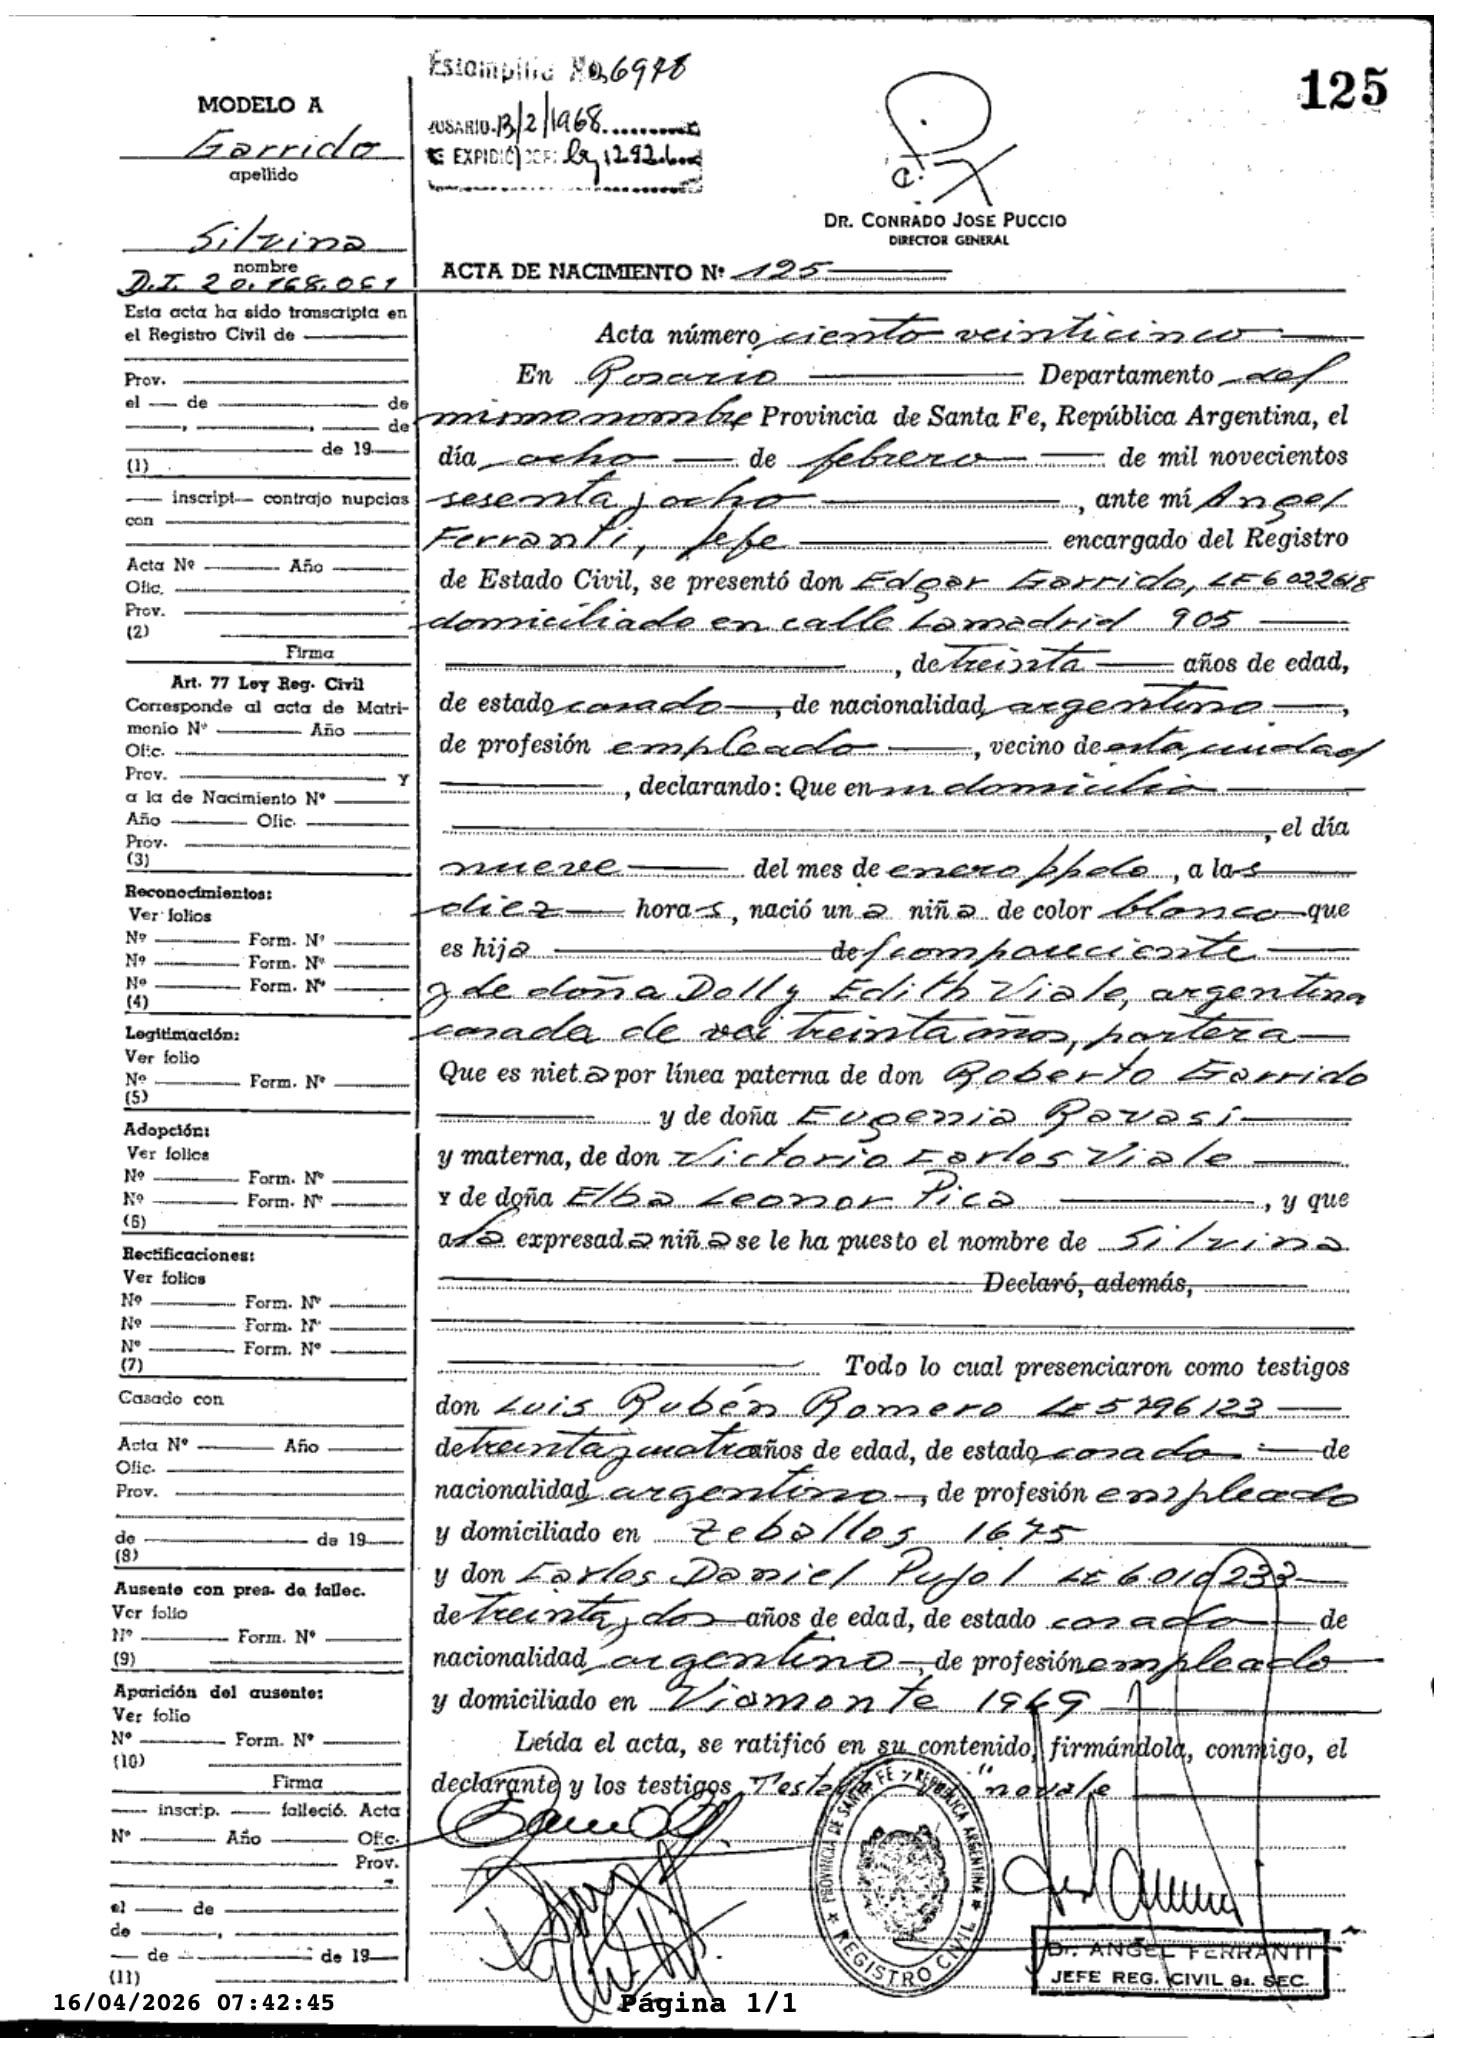 125
Estampilla No 6978
ROSARIO 13/2/1968
SE EXPIDIÓ
DR. CONRADO JOSE PUCCIO
DIRECTOR GENERAL
MODELO A
Garrido
apellido
Silvina
nombre
D.I. 20.168.061
Esta acta ha sido transcripta en
el Registro Civil de
Prov.
el de de
, , de
de 19
(1)
inscript contrajo nupcias
con
Acta Nº Año
Ofic.
Prov.
(2)
Firma
Art. 77 Ley Reg. Civil
Corresponde al acta de Matri-
monio Nº Año
Ofic.
Prov. y
a la de Nacimiento Nº
Año Ofic.
Prov.
(3)
Reconocimientos:
Ver folios
Nº Form. Nº
Nº Form. Nº
Nº Form. Nº
(4)
Legitimación:
Ver folio
Nº Form. Nº
(5)
Adopción:
Ver folios
Nº Form. Nº
Nº Form. Nº
(6)
Rectificaciones:
Ver folios
Nº Form. Nº
Nº Form. Nº
Nº Form. Nº
(7)
Casado con
Acta Nº Año
Ofic.
Prov.
de de 19
(8)
Ausente con pres. de fallec.
Ver folio
Nº Form. Nº
(9)
Aparición del ausente:
Ver folio
Nº Form. Nº
(10)
Firma
inscrip. falleció. Acta
Nº Año Ofic.
Prov.
el de
de ,
de de 19
(11)
ACTA DE NACIMIENTO Nº 125
Acta número ciento veinticinco
En Rosario Departamento del
mismo nombre Provincia de Santa Fe, República Argentina, el
día ocho de febrero de mil novecientos
sesenta y ocho , ante mí Angel
Ferranti, Jefe encargado del Registro
de Estado Civil, se presentó don Edgar Garrido, LE 6022618
domiciliado en calle Lamadrid 905
, de treinta años de edad,
de estado casado , de nacionalidad argentino ,
de profesión empleado , vecino de esta ciudad
, declarando: Que en su domicilio
, el día
nueve del mes de enero ppdo , a las
diez horas, nació una niña de color blanco que
es hija del compareciente
y de doña Dolly Edith Viale, argentina
casada de vei treinta años, partera
Que es nieta por línea paterna de don Roberto Garrido
y de doña Eugenia Ravasi
y materna, de don Victorio Carlos Viale
Y de doña Elba Leonor Pica , y que
a la expresada niña se le ha puesto el nombre de Silvina
Declaró, además,
Todo lo cual presenciaron como testigos
don Luis Rubén Romero LE 5996123
de treinta y cuatro años de edad, de estado casado de
nacionalidad argentino , de profesión empleado
y domiciliado en Zeballos 1675
y don Carlos Daniel Pujol LE 6.010.233
de treinta y dos años de edad, de estado casado de
nacionalidad argentino , de profesión empleado
y domiciliado en Viamonte 1969
Leída el acta, se ratificó en su contenido, firmándola, conmigo, el
declarante y los testigos "no vale
PROVINCIA DE SANTA FE Y REPUBLICA ARGENTINA
REGISTRO CIVIL
Dr. ANGEL FERRANTI
JEFE REG. CIVIL 9a. SEC.
16/04/2026 07:42:45
Página 1/1